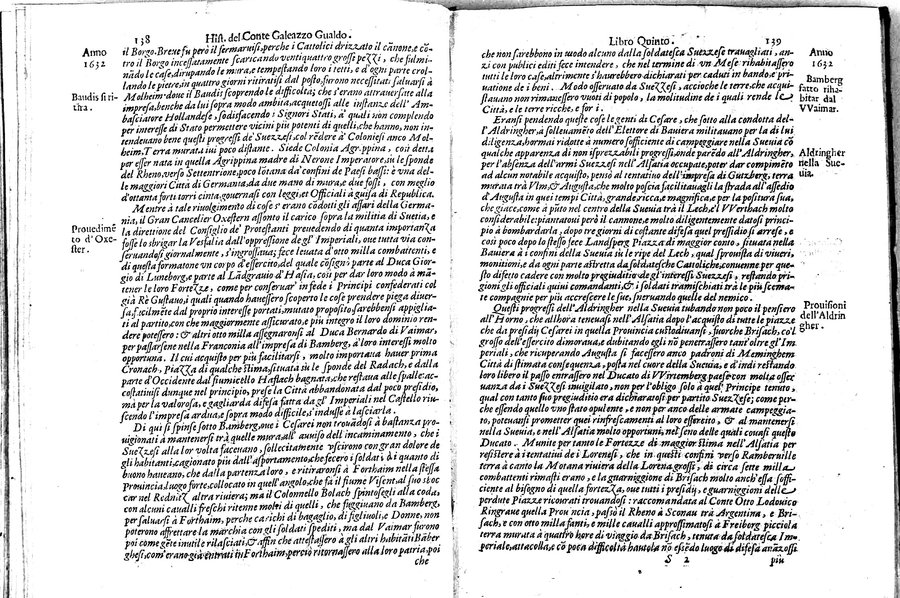 138 Hist. del Conte Galeazzo Gualdo.
Anno
1632
Baudis si ri-
tira.
Prouedimē
to d'Oxe-
ster.
il Borgo. Breue fu però il fermaruisi, perche i Cattolici drizzato il cānone, e cō-
tro il Borgo incessatamente scaricando ventiquattro grosse pezzi, che fulmi-
nādo le case, dirupando le mura, e tempestando loro i tetti, e d'ogni parte crol-
lando le pietre, in quattro giorni ritiratisi dal posto, furono necessitati saluarsi à
Molheim doue il Baudis scoprendo le difficoltà; che s'erano attrauersate alla
impresa, benche da lui sopra modo ambita, acquetossi alle instanze dell'Am-
basciatore Hollandese, sodisfacendo i Signori Stati, à quali non complendo
per interesse di Stato permettere vicini piu potenti di quelli, che hanno, non in-
tendeuano bene questi progressi de' Suezzesi, col rēdere à Coloniesi anco Mol-
heim. Terra murata iui poco distante. Siede Colonia Agrippina, così detta
per esser nata in quella Agrippina madre di Nerone Imperatore, su le sponde
del Rheno, verso Settentrione, poco lōtana da' cōfini de Paesi bassi: è vna del-
le maggiori Città di Germania, da due mano di mura, e due fossi, con meglio
d'ottanta forti torri cinta, gouernasi con leggi, et Officiali à guisa di Republica.
Mentre à tale riuolgimento di cose s'erano codotti gli affari della Germa-
nia, il Gran Cancelier Oxestern assonto il carico sopra la militia di Suetia, e
la direttione del Consiglio de' Protestanti preuedendo di quanta importanza
fosse lo sbrigar la Vesfalia dall'oppressione de gl'Imperiali, oue tutta via con-
seruandosi giornalmente, s'ingrossaua; fece leuata d'otto milla combattenti, e
di questa formatone vn corpo d'essercito, del quale cōsignò parte al Duca Gior-
gio di Luneborg, e parte al Lādgrauio d'Hasia, così per dar loro modo à mā-
tener le loro Fortezze, come per conseruar' in fede i Principi confederati col
già Rè Gustauo, i quali quando hauessero scoperto le cose prendere piega diuer-
sa, facilmēte dal proprio interesse portati, mutato proposito, sarebbensi appiglia-
ti al partito, con che maggiormente assicurato, e piu integro il loro dominio ren-
dere potessero: & altri otto milla assegnaronsi al Duca Bernardo di Vaimar,
per passarsene nella Franconia all'impresa di Bamberg, à loro interessi molto
opportuna. Il cui acquisto per piu facilitarsi, molto importaua hauer prima
Cronach, Piazza di qualche stima, situata su le sponde del Radach, e dalla
parte d'Occidente dal fiumicello Haslach bagnata, che restaua alle spalle: ac-
costatiuisi dunque nel principio, prese la Città abbandonata dal poco presidio,
mà per la valorosa, e gagliarda difesa fatta da gl'Imperiali nel Castello riu-
scendo l'impresa ardua, e sopra modo difficile, s'indusse à lasciarla.
Di qui si spinse sotto Bamberg, oue i Cesarei non trouādosi à bastanza pro-
uigionati à mantenersi trà quelle mura, all'auuiso dell'incaminamento, che i
Suezzesi alla lor volta faceuano, sollecitamente vscirono con gran dolore de
gli habitanti, cagionato piu dall'asportamento, che fecero i soldati di quanto di
buono haueano, che dalla partenza loro, e ritiraronsi à Forthaim nella stessa
Prouincia, luogo forte, collocato in quell'angolo, che fà il fiume Visent, al suo sboc
car nel Rednitz altra riuiera; ma il Colonnello Bolach spintosegli alla coda,
con alcuni caualli freschi ritenne molti di quelli, che fuggiuano da Bamberg,
per saluarsi à Forthaim, perche carichi di bagaglio, di figliuoli, e Donne, non
poterono affrettare la marchia con gli soldati spediti, ma dal Vaimar furono
poi come gēte inutile rilasciati, & affin che attestassero à gli altri habitāti Bāber
ghesi, com'erano già entrati in Forthaim, perciò ritornassero alla loro patria, poi
che
Libro Quinto. 139
Anno
1632
Bamberg
fatto riha-
bitar dal
VVaimar.
Aldringher
nella Sue-
uia.
Prouisioni
dell'Aldrin
gher.
che non sarebbono in modo alcuno dalla soldatesca Suezzese trauagliati, an-
zi con publici editti fece intendere, che nel termine di vn Mese rihabitassero
tutti le loro case, altrimente s'haurebbero dichiarati per caduti in bando, e pri-
uatione de i beni. Modo osseruato da Suezzesi, accioche le terre, che acqui-
stauano non rimanessero vuoti di popolo, la molitudine de i quali rende le
Città, e le terre ricche, e forti.
Eransi pendenti queste cose le genti di Cesare, che sotto alla condotta del-
l'Aldringher, à solleuamēto dell'Elettore di Bauiera militauano per la di lui
diligenza, hormai ridotte à numero sofficiente di campeggiare nella Sueuia cō
qualche apparenza di non isprezzabili progressi, onde parēdo all'Aldringher,
per hauer l'armi Suezzesi nell'Alsatia occupate, poter dar compimēto
ad alcun notabile acquisto, pensò al tentatiuo dell'impresa di Gutzberg, terra
murata trà Vlm, & Augusta, che molto poscia facilitauagli la strada all'assedio
d'Augusta in quei tempi Città, grande, ricca, e magnifica, e per la positura sua,
che giace, come à pūto nel centro della Sueuia trà il Lech, e'l VVerthach molto
considerabile: piantatoui però il cannone, e molto diligentemente datosi princi-
pio à bombardarla, dopo tre giorni di costante difesa quel pressidio si arrese, e
così poco dopo lo stesso fece Landsperg Piazza di maggior conto, situata nella
Bauiera à i confini della Sueuia su le ripe del Lech, qual sprouista di viueri,
monitioni, e da ogni parte astretta da soldatesche Cattoliche, conuenne per que-
sto difetto cadere con molto pregiuditio de gl'interessi Suezzesi, restando pri-
gioni gli officiali quiui comandanti, & i soldati tramischiati trà le piu scema-
te compagnie per piu accrescere le sue, sneruando quelle del nemico.
Questi progressi dell'Aldringher nella Sueuia tubando non poco il pensiero
all'Horno, che all'hora teneuasi nell'Alsatia dopo l'acquisto di tutte le piazze
che da presidij Cesarei in quella Prouincia custodiuansi, fuorche Brisach, co'l
grosso dell'essercito dimoraua, e dubitando egli nō penetrassero tant'oltre gl'Im
periali, che ricuperando Augusta si facessero anco padroni di Memminghem
Città di stimata consequenza, posta nel cuore della Sueuia, e d'indi restando
loro libero il passo entrassero nel Ducato di VVirtemberg paese con molta osser
uanza da i Suezzesi inuigilato, non per l'obligo solo à quel Principe tenuto,
qual con tanto suo pregiuditio era dichiaratosi per partito Suezzese; come per-
che essendo quello vno stato opulente, e non per anco delle armate campeggia-
to, poteuansi prometter quei rinfrescamenti al loro essercito, & al mantenersi
nella Sueuia, e nell'Alsatia molto opportuni, nel seno delle quali couasi questo
Ducato. Munite per tanto le Fortezze di maggior stima nell'Alsatia per
resistere à i tentatiui de i Lorenesi, che in questi confini verso Ramberuille
terra à canto la Motana riuiera della Lorena grossi, di circa sette milla
combattenti rimasti erano, e la guarniggione di Brisach molto anco essa soffi-
ciente al bisogno di quella fortezza, oue tutti i presidij, e guarniggioni delle
perdute Piazze ricourati trouandosi: raccomandata al Conte Otto Lodouico
Ringraue quella Prouincia, passò il Rheno à Sconau trà Argentina, e Bri-
sach, e con otto milla fanti, e mille caualli approssimatosi à Freiborg picciola
terra murata à quattro hore di viaggio da Brisach, tenuta da soldatesca Im
periale, attaccolla, e cō poca difficoltà hauutola nō essēdo luogo di difesa auāzossi
S 2 piu